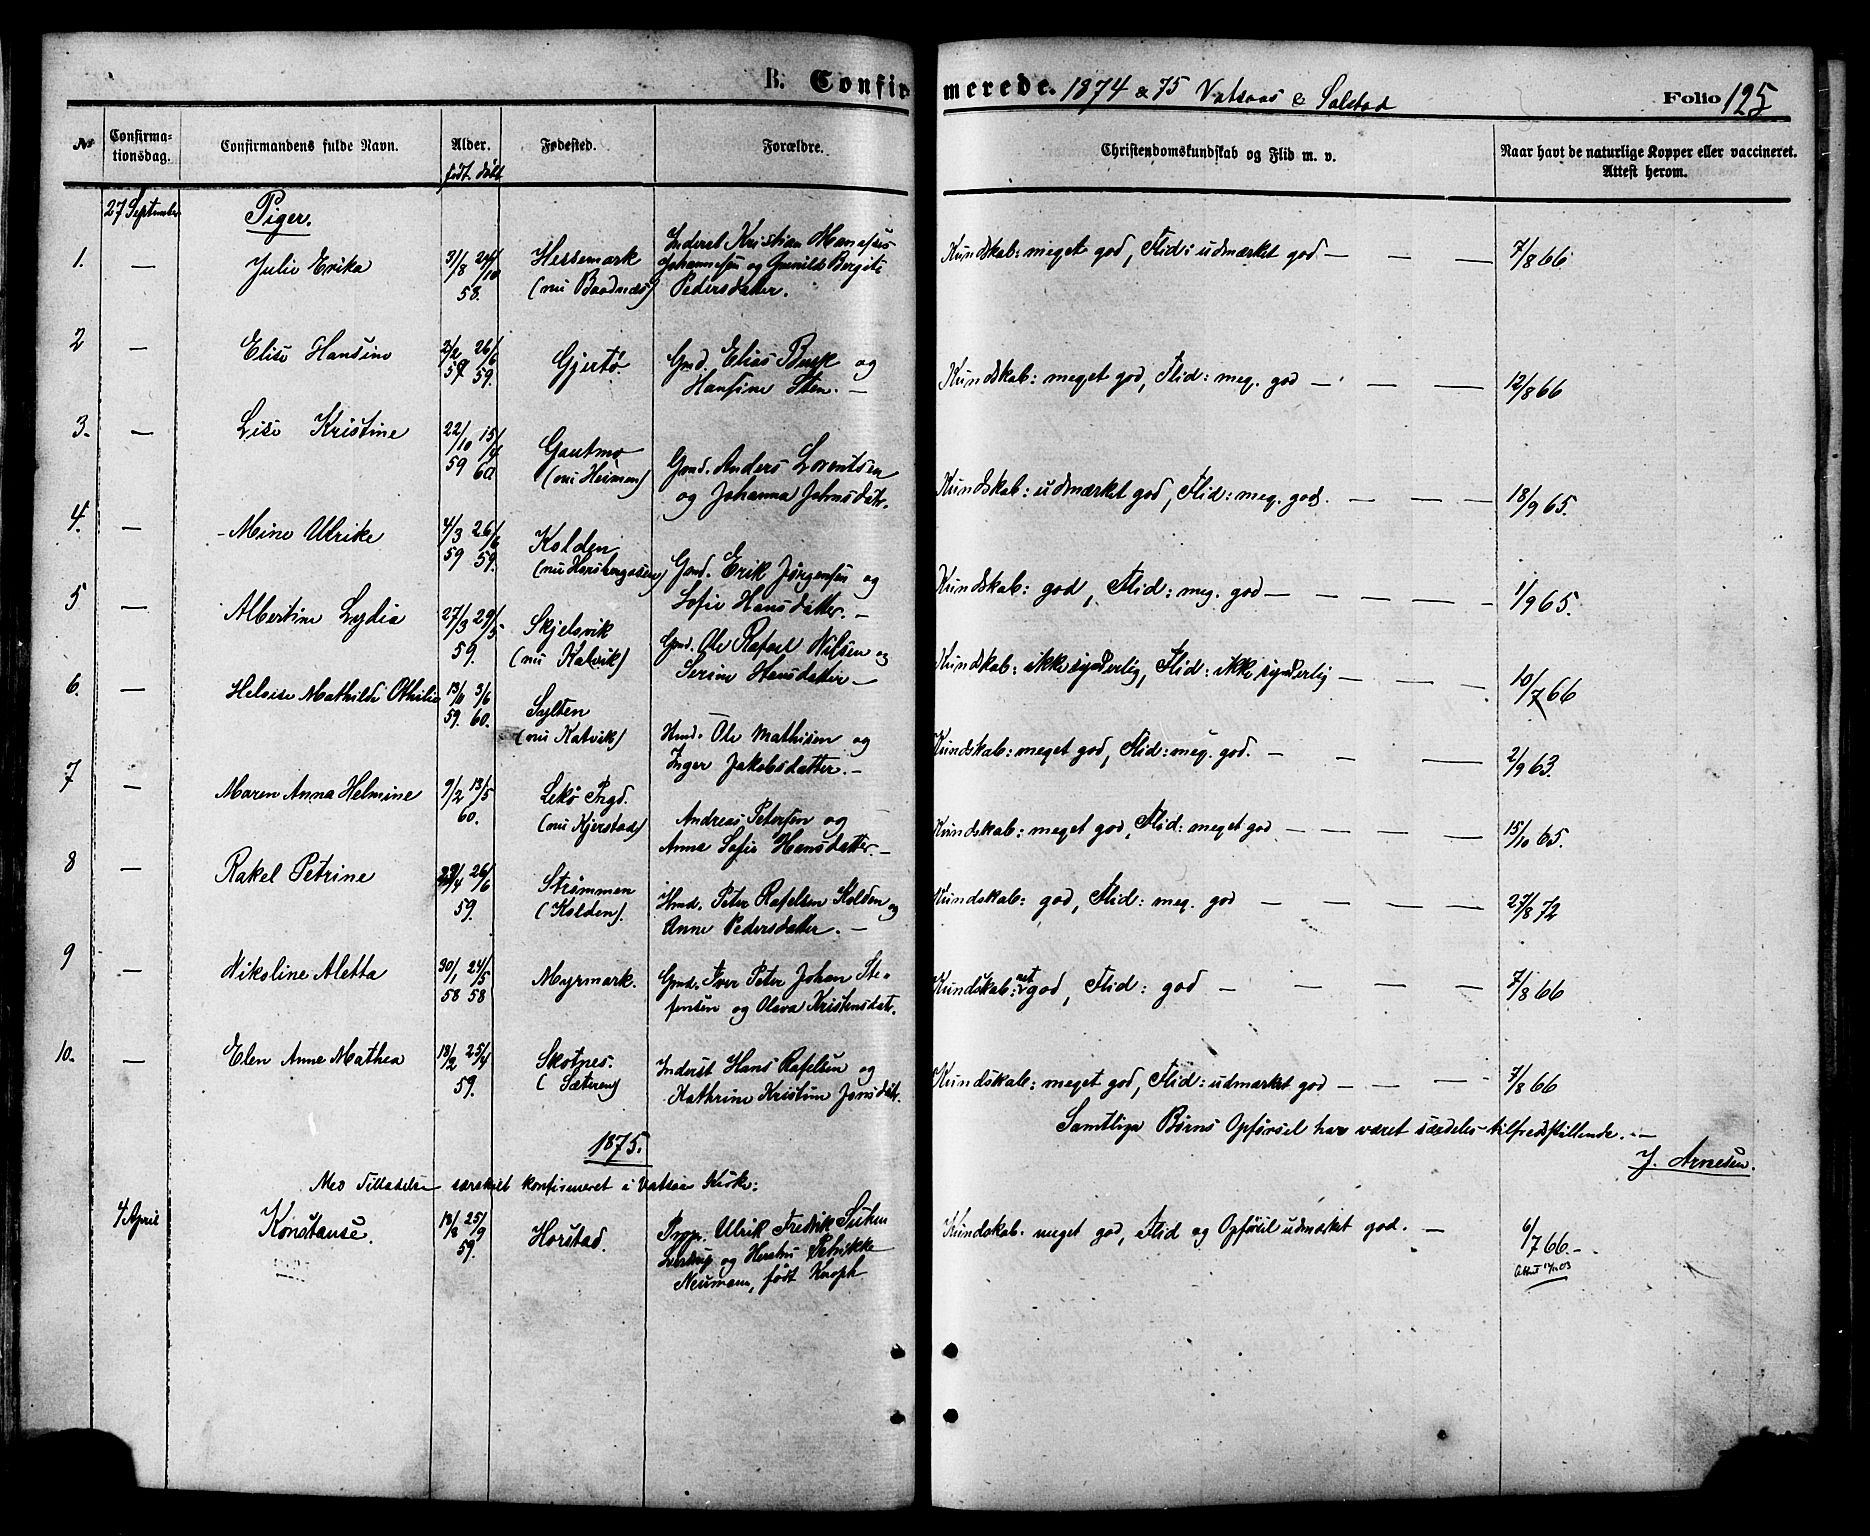 B. Confirmerede. 1874 & 75 Vatsaas & Solstad Folio 125
No Confirma-tionsdag. Confirmandens fulde Navn. Alder. født døbt Fødested. Forældre. Christendomskundskab og Flid m. v. Naar havt de naturlige Kopper eller vaccineret. Attest herom.
27 September Piger.
1. — Julie Erika 31/8 24/10 58. Hessemark (nu Baadnæs) Inderst Kristian Manasses
Johannesen og Gunild Bergite
Pedersdatter.
Kundskab: meget god, Flid: udmærket god — — — 7/8 66.
2 — Elise Hansine 2/2 26/6 59 59. Gjertø. Gmd. Elias Busk og
Hansine Sten. —
Kundskab: meget god, Flid: meg. god — — — 12/8 66
3. — Lise Kristine 22/10 15/4 59 60 Gautmo (nu Heimen) Gmd. Anders Lorentsen
og Johanna Johnsdatr.
Kundskab: udmærket god, Flid: meg. god. — — — 18/9 65.
4. — Mine Ulrike 4/3 26/6 59 59. Kolden (nu Horsbergaasen) Gmd. Erik Jørgensen og
Sofie Hansdatter. —
Kundskab: god, Flid: meg. god — — — — — 1/9 65.
5 — Albertine Lydia 27/3 29/5 59. Skjelsvik (nu Kalvik) Gmd. Ole Rafael Nilsen og
Serine Hansdatter —
Kundskab: ikke synderlig, Flid: ikke synderlig — — — 10/7 66
6. — Heloise Mathilde Othilie 13/11 3/6 59. 60. Sylten (nu Kalvik) Hmd. Ole Mathisen og
Inger Jakobsdatter. —
Kundskab: meget god, Flid: meg. god. — — — 2/9 63.
7 — Maren Anna Helmine 9/2 13/5 60. Lekø Prgd. (nu Kjerstad) Andreas Petersen og
Anna Sofie Hansdatter. —
Kundskab: meget god, Flid: meget god — — — — 15/10 65.
8 — Rakel Petrine 29/4 26/6 59. Strømmen (Kolden). Hmd. Peter Rafelsen Kolden og
Anne Pedersdatter. —
Kundskab: god, Flid: meg. god — — — — 27/8 72
9 — Nikoline Aletta 30/1 24/5 58 58 Myrmark. Gmd. Iver Peter Johan Ste-
fensen og Olava Kristensdatr.
Kundskab: god, Flid: god — — — — 7/8 66
10. — Elen Anne Mathea 18/2 25/4 59. Skotnes. (Sæteren) Inderst Hans Rafelsen og
Kathrine Kristine Jonsdatr.
Kundskab: meget god, Flid: udmærket god — — — — 7/8 66
Samtlige Børns Opførsel har været særdeles tilfredsstillende. —
J. Arnesen.
1875.
Med Tilladelse særskilt konfirmeret i Vatsaas Kirke:
4 April Konstanse. 18/8 25/9 59. Horstad. Prop. Ulrik Fredrik Suhm
og Petrikke
Neumann, født Knoph
Kundskab: meget god, Flid og Opførsel udmærket god. — 6/7 66. —